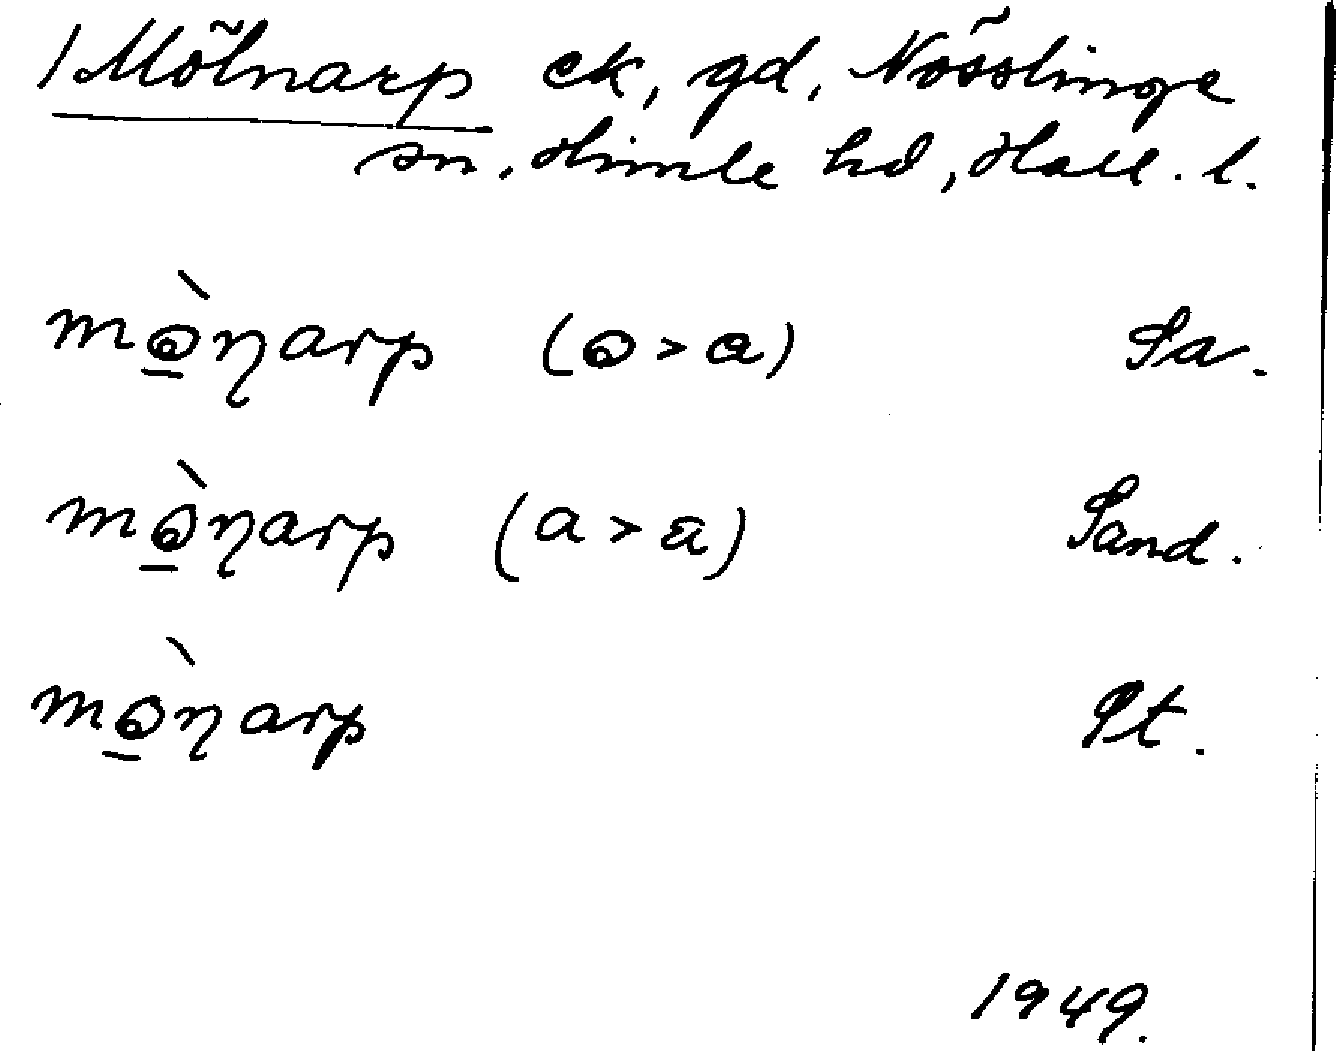 1 Mölnarp ek, gd, Nösslinge
sn, Himle hd, Hall. l.
mɷ̲̀ɳarp (ɷ > a) Sa.
mɷ̲̀ɳarp (a > a) Sand.
mɷ̲̀ɳarp Pt.
1949.